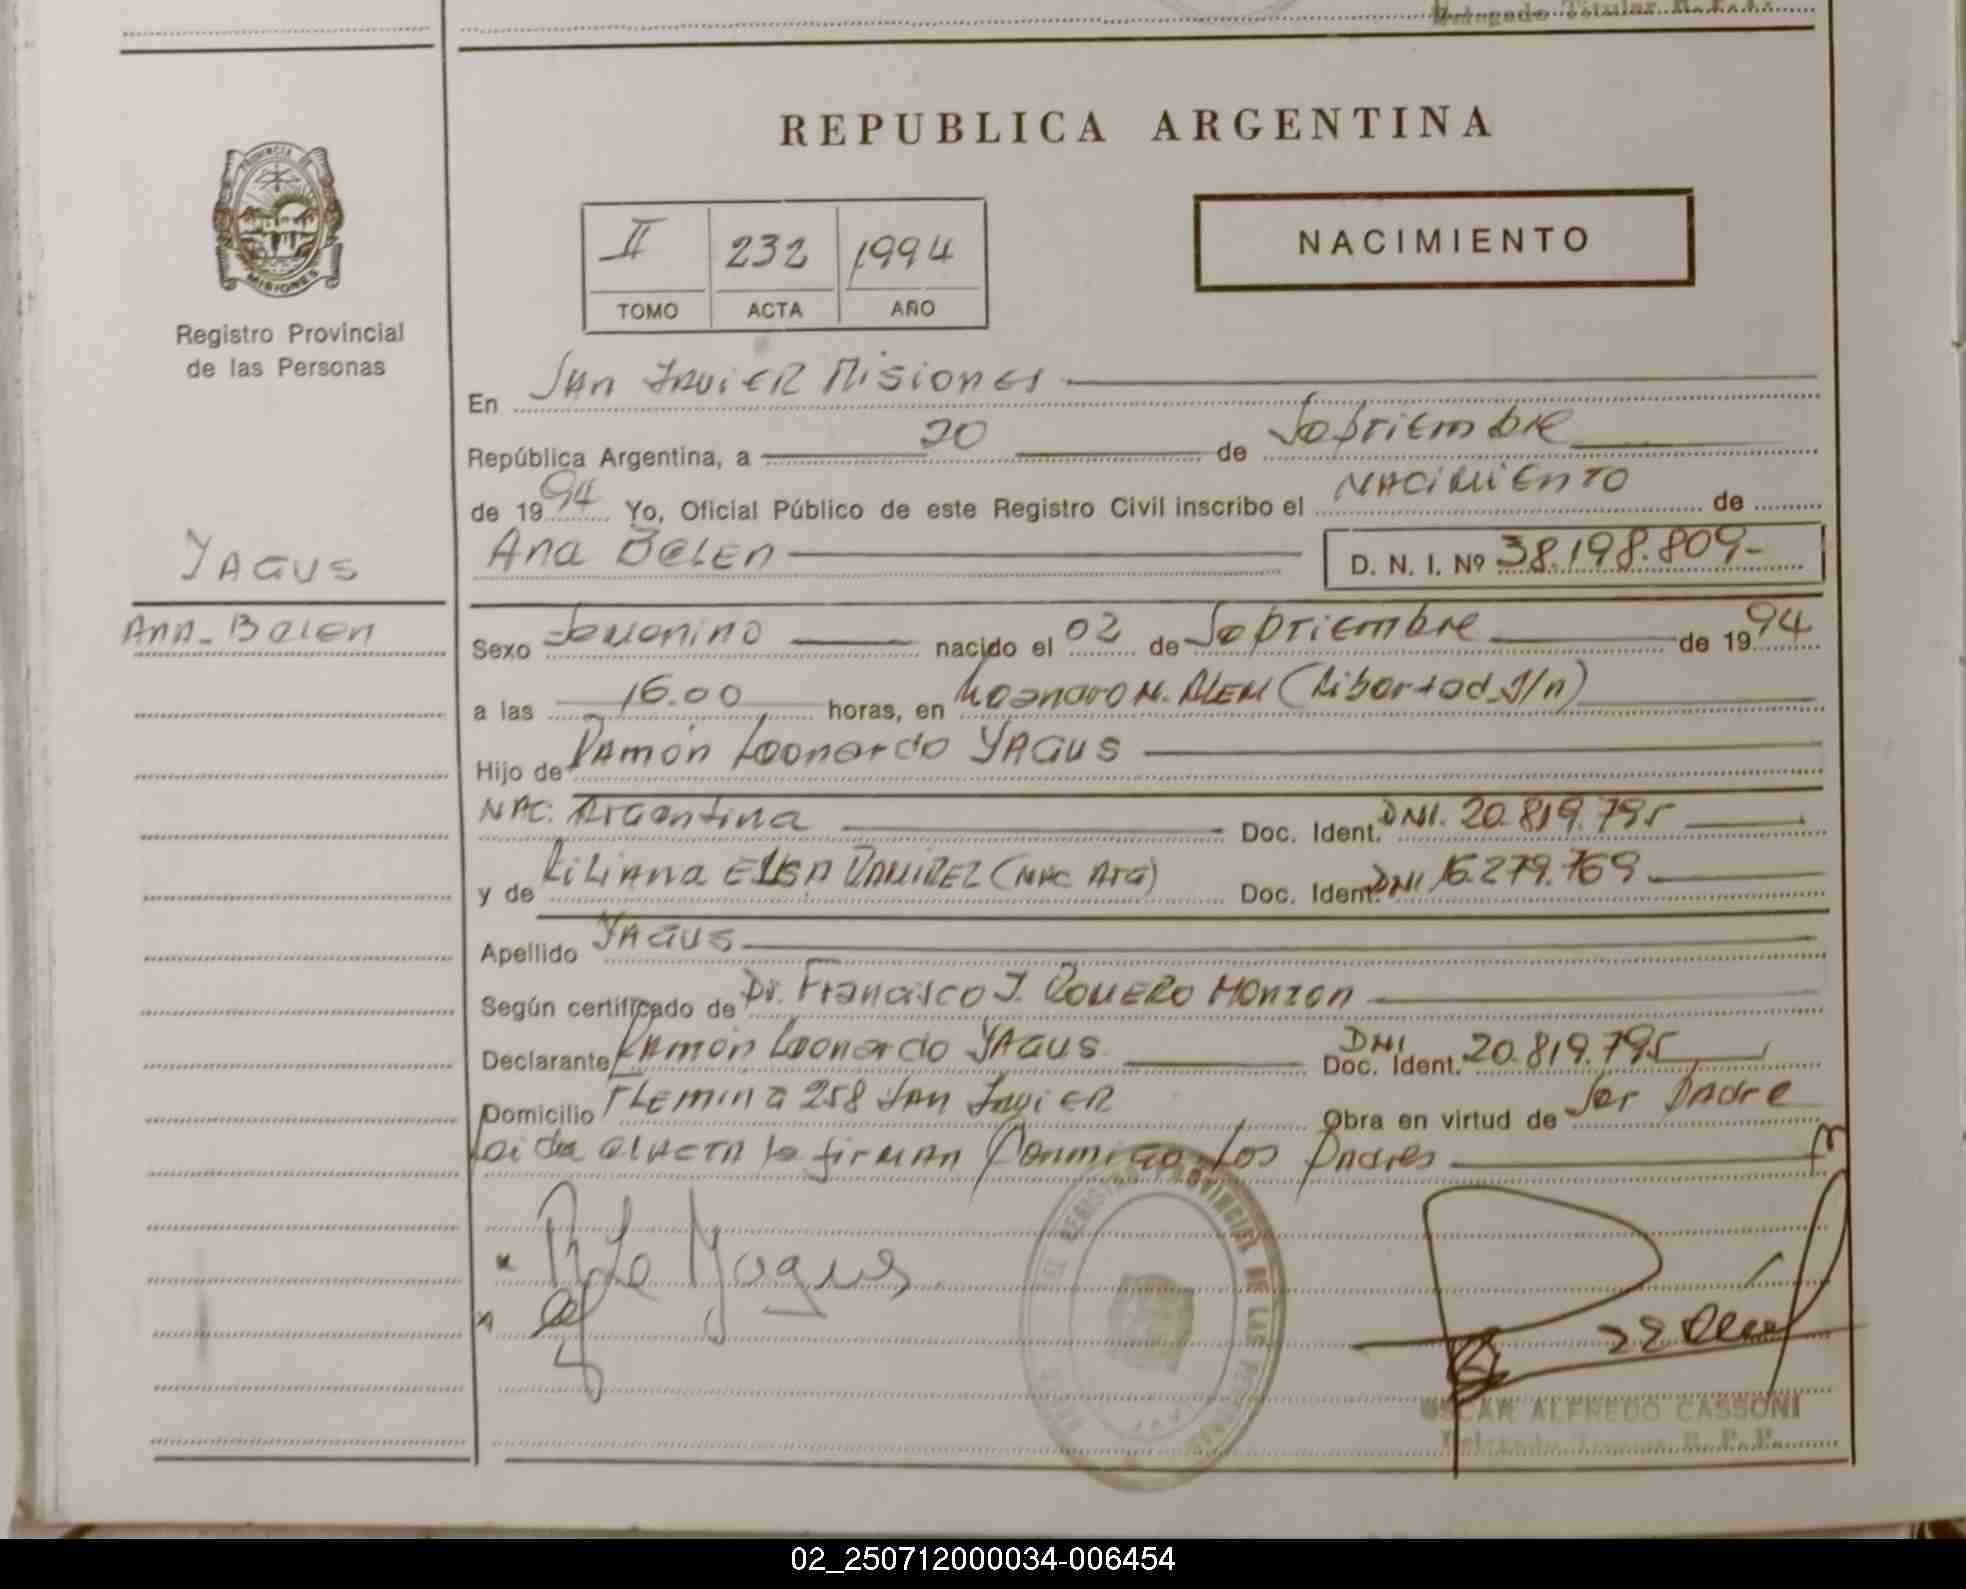 Delegado Titular R.P.P.
REPUBLICA ARGENTINA
PROVINCIA DE
MISIONES
Registro Provincial
de las Personas
II 232 1994
TOMO ACTA AÑO
NACIMIENTO
En San Javier Misiones
República Argentina, a 20 de Septiembre
de 1994 Yo, Oficial Público de este Registro Civil inscribo el NACIMIENTO de
Ana BELEN D. N. I. Nº 38.198.809-
YAGUS
Ana-Belen
Sexo Femenino nacido el 02 de Septiembre de 1994
a las 16.00 horas, en Leandro N. ALEM (Libertad S/n)
Hijo de Ramón Leonardo YAGUS
NAC. Argentina Doc. Ident. DNI. 20.819.795
y de Liliana ELISA RAMIREZ (NAC Arg) Doc. Ident. DNI 16.279.769
Apellido YAGUS
Según certificado de Dr. Francisco J. ROMERO MONZON
Declarante Ramón Leonardo YAGUS DNI Doc. Ident. 20.819.795
Domicilio FLEMING 258 San Javier Obra en virtud de Ser Padre
Leida el ACTA la firman Conmigo los Padres
REGISTRO PROVINCIAL DE LAS PERSONAS
OSCAR ALFREDO CASSONI
Delegado Titular R. P. P.
02_250712000034-006454